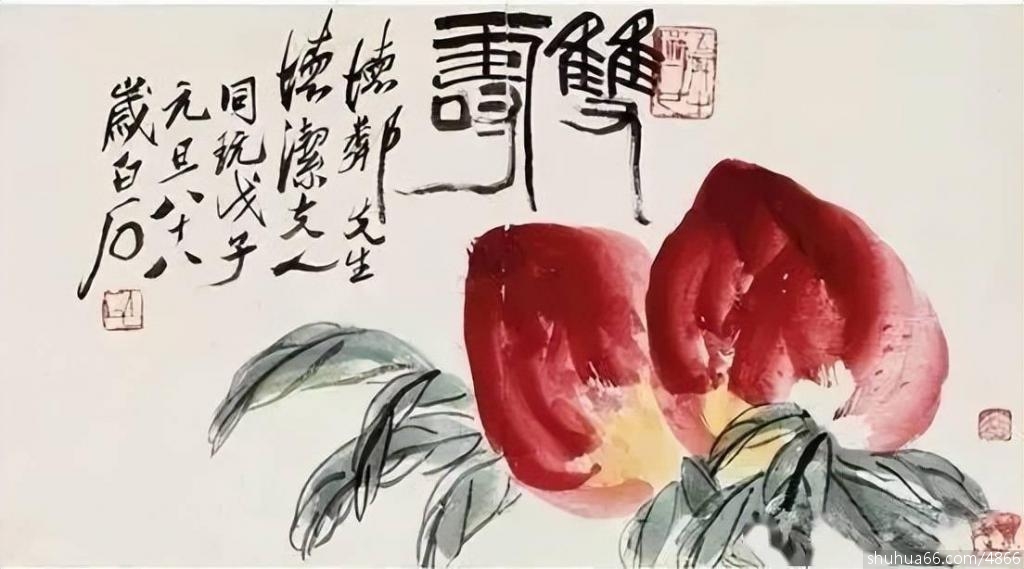 雙壽
懷鄰先生
懷潔夫人
同玩戊子
元旦八十八
歲白石
shuhua66.com/4866